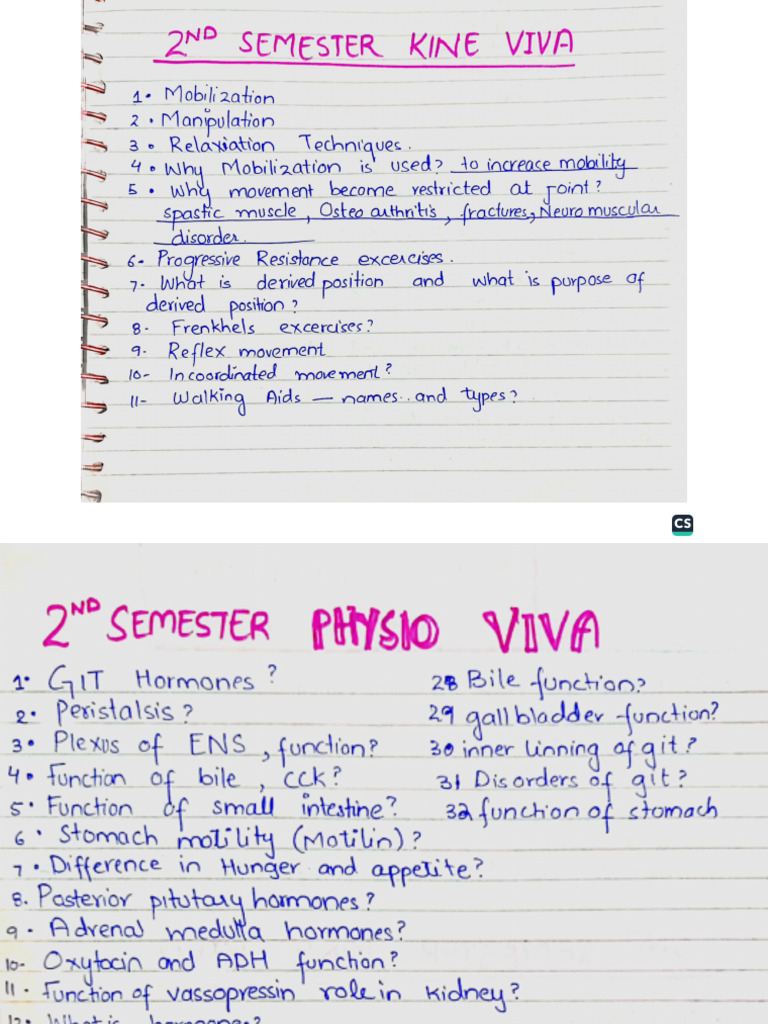 2ND SEMESTER KINE VIVA
1. Mobilization
2. Manipulation
3. Relaxiation Techniques.
4. Why Mobilization is used? to increase mobility
5. Why movement become restricted at joint?
spastic muscle, Osteo arthritis, fractures, Neuro muscular
disorder.
6- Progressive Resistance excercises.
7. What is derived position and what is purpose of
derived position?
8- Frenkhels excercises?
9- Reflex movement
10- Incoordinated movement?
11- Walking Aids — names.. and types?
CS
2ND SEMESTER PHYSIO VIVA
1. GIT Hormones?
2. Peristalsis?
3. Plexus of ENS, function?
4. Function of bile, CCK?
5. Function of small intestine?
6. Stomach motility (Motilin)?
7. Difference in Hunger and appetite?
8. Posterior pitutary hormones?
9. Adrenal medulla hormones?
10- Oxytocin and ADH function?
11. Function of vassopressin role in kidney?
12. What is hormone?
28 Bile function?
29 gallbladder function?
30 inner linning of git?
31 Disorders of git?
32 function of stomach